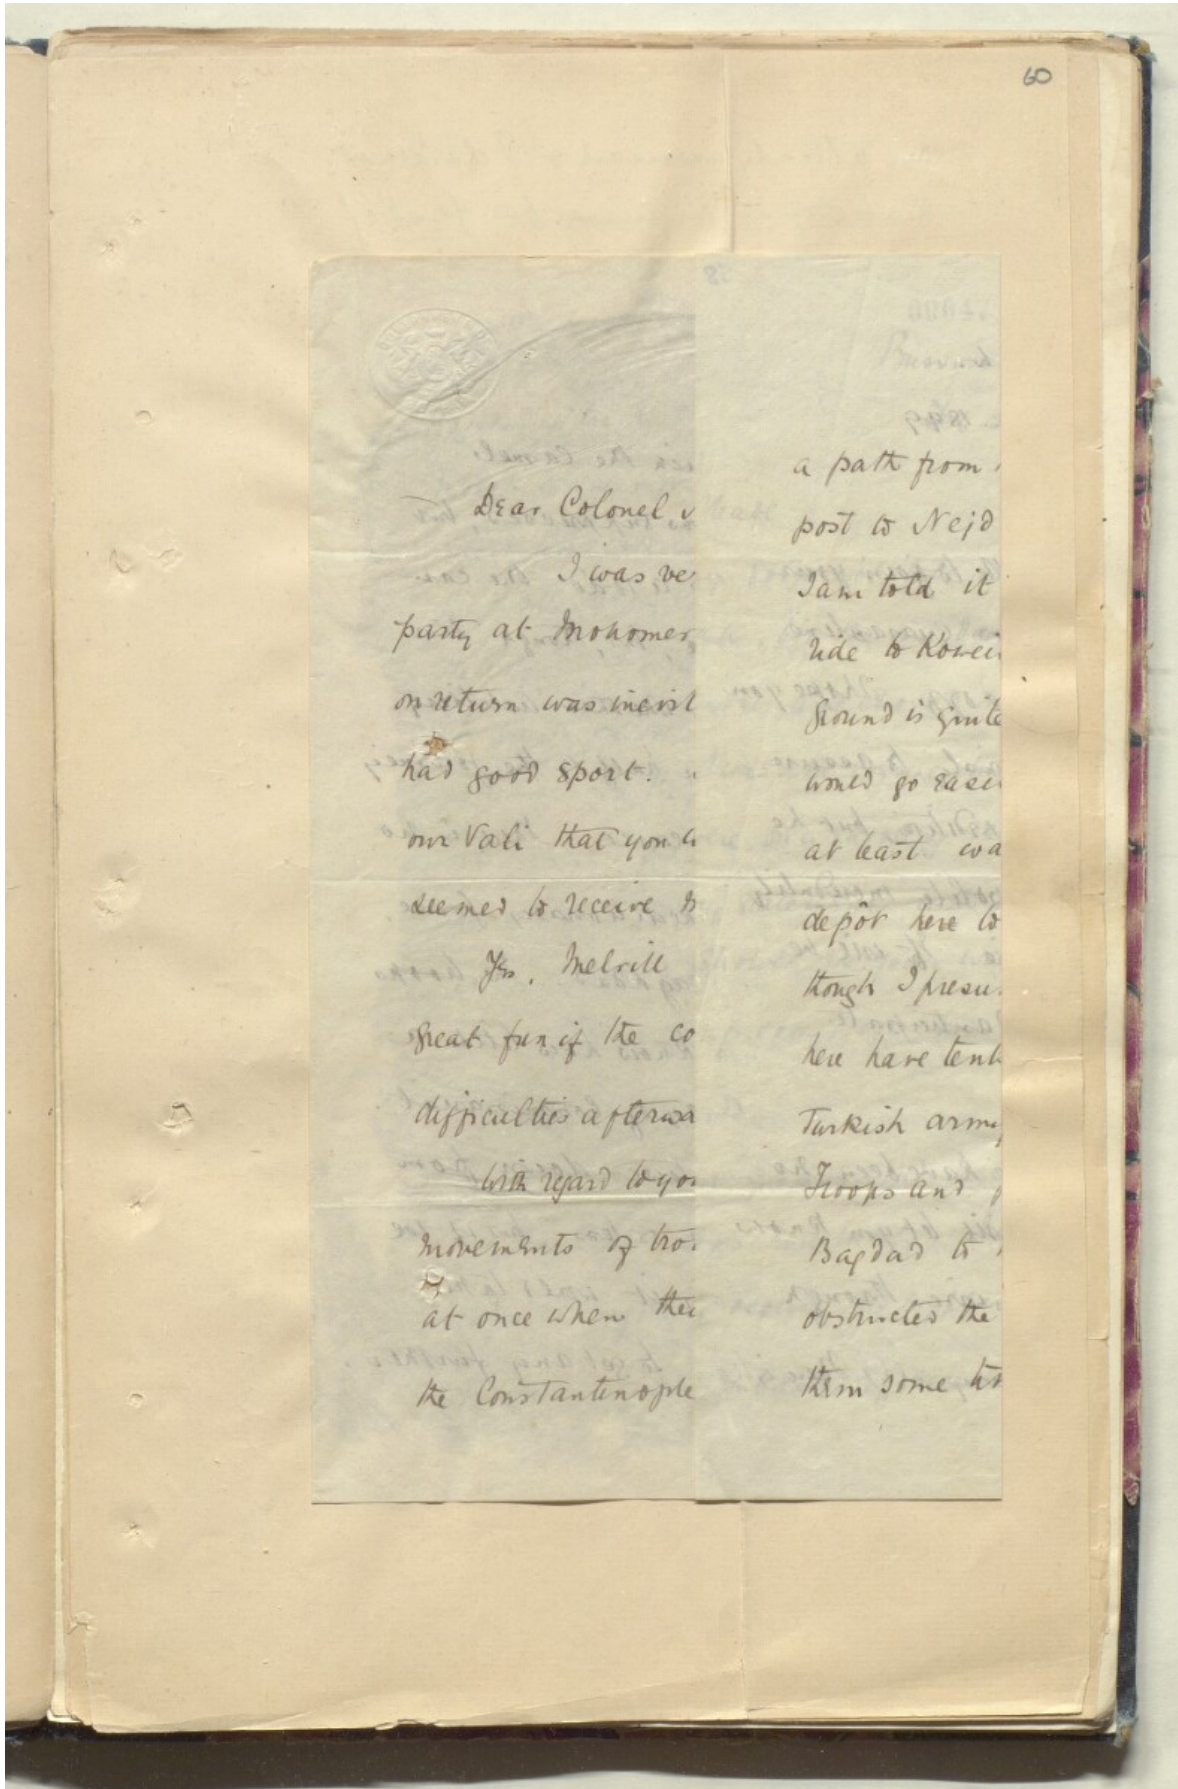 60
Dear Colonel
I was ve
party at Mohomer
on return was inevit
had good sport.
our Vali that you
seemed to receive
Yes, Melvill
great fun if the co
difficulties afterwa
with regard to you
movements of tro
at once when thei
the Constantinople
a path from
post to Nejd
I am told it
ride to Kowei
ground is quite
would go easi
at least wa
depôt here to
though I presu
here have tent
Turkish army
Troops and
Bagdad to
obstructed the
them some